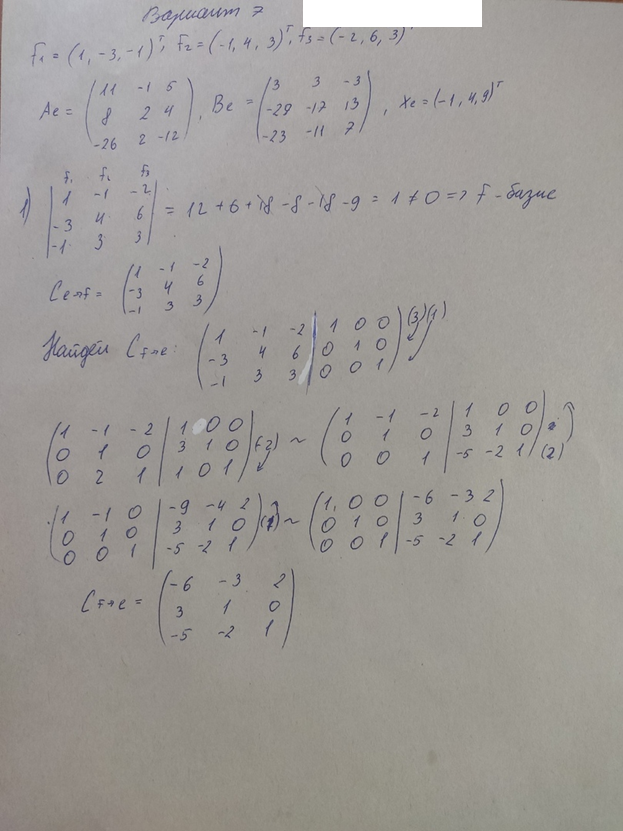 Вариант 7
f₁ = (1, -3, -1)ᵀ, f₂ = (-1, 4, 3)ᵀ, f₃ = (-2, 6, 3)ᵀ
Ae = (11 -1 5
8 2 4
-26 2 -12), Be = (3 3 -3
-29 -17 13
-23 -11 7), Xe = (-1, 4, 9)ᵀ
f₁ f₂ f₃
1) |1 -1 -2
-3 4 6
-1 3 3| = 12 + 6 + 18 - 8 - 18 - 9 = 1 ≠ 0 => f - базис
Ce→f = (1 -1 -2
-3 4 6
-1 3 3)
Найдем Cf→e: (1 -1 -2 | 1 0 0
-3 4 6 | 0 1 0
-1 3 3 | 0 0 1) (3) (1)
(1 -1 -2 | 1 0 0
0 1 0 | 3 1 0
0 2 1 | 1 0 1) (-2) ~ (1 -1 -2 | 1 0 0
0 1 0 | 3 1 0
0 0 1 | -5 -2 1) (2)
(1 -1 0 | -9 -4 2
0 1 0 | 3 1 0
0 0 1 | -5 -2 1) (1) ~ (1 0 0 | -6 -3 2
0 1 0 | 3 1 0
0 0 1 | -5 -2 1)
Cf→e = (-6 -3 2
3 1 0
-5 -2 1)